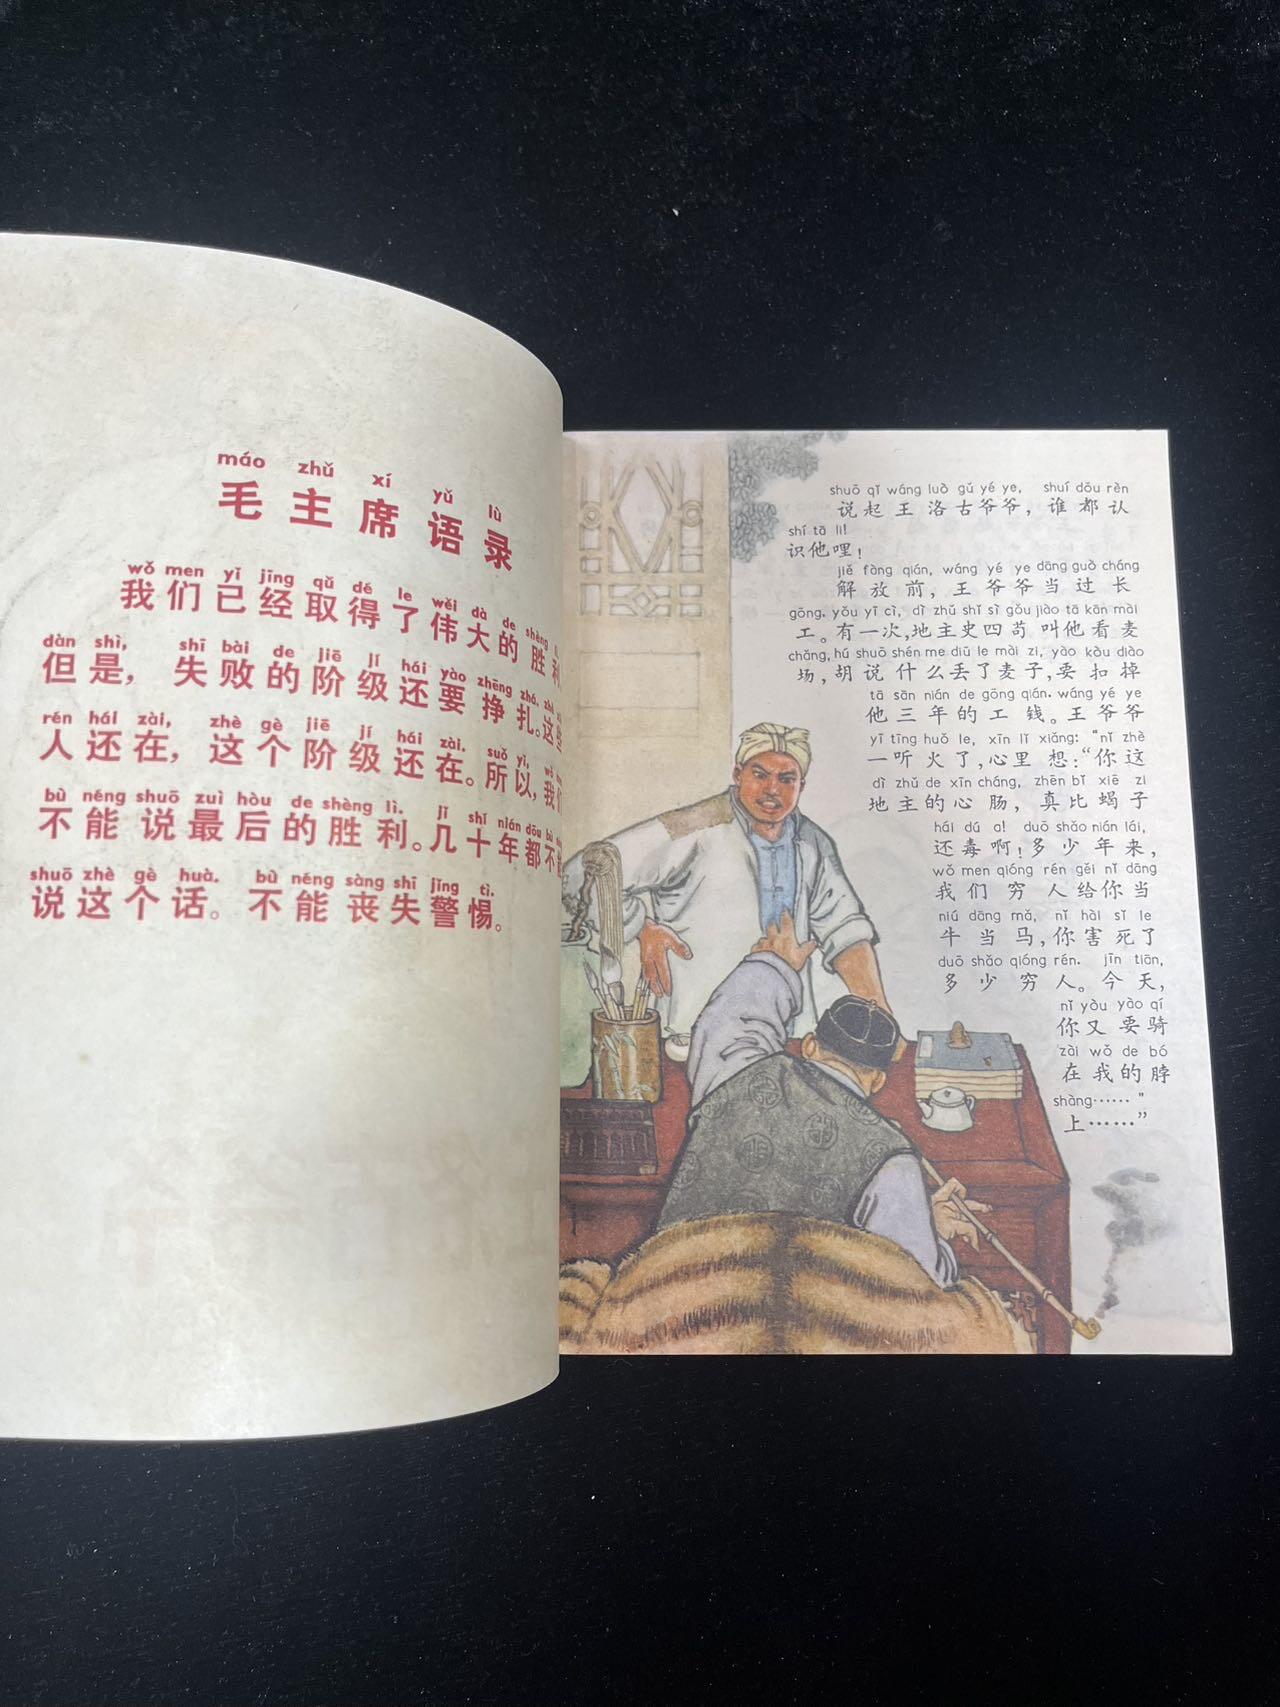 máo zhǔ xí yǔ lù
毛主席语录
wǒ men yǐ jīng qǔ dé le wěi dà de shèng lì.
我们已经取得了伟大的胜利
dàn shì, shī bài de jiē jí hái yào zhēng zhá. zhè
但是，失败的阶级还要挣扎。这些
rén hái zài, zhè gè jiē jí hái zài. suǒ yǐ, wǒ
人还在，这个阶级还在。所以，我们
bù néng shuō zuì hòu de shèng lì. jǐ shí nián dōu bù
不能说最后的胜利。几十年都不能
shuō zhè gè huà. bù néng sàng shī jǐng tì.
说这个话。不能丧失警惕。
shuō qǐ wáng luò gǔ yé ye, shuí dōu rèn
说起王洛古爷爷，谁都认
shí tā li!
识他哩！
jiě fàng qián, wáng yé ye dāng guò cháng
解放前，王爷爷当过长
gōng. yǒu yī cì, dì zhǔ shǐ sì gǒu jiào tā kān mài
工。有一次，地主史四苟叫他看麦
chǎng, hú shuō shén me diū le mài zi, yào kòu diào
场，胡说什么丢了麦子，要扣掉
tā sān nián de gōng qián. wáng yé ye
他三年的工钱。王爷爷
yī tīng huǒ le, xīn lǐ xiǎng: "nǐ zhè
一听火了，心里想：“你这
dì zhǔ de xīn cháng, zhēn bǐ xiē zi
地主的心肠，真比蝎子
hái dú a! duō shǎo nián lái,
还毒啊！多少年来，
wǒ men qióng rén gěi nǐ dāng
我们穷人给你当
niú dāng mǎ, nǐ hài sǐ le
牛当马，你害死了
duō shǎo qióng rén. jīn tiān,
多少穷人。今天，
nǐ yòu yào qí
你又要骑
zài wǒ de bó
在我的脖
shàng……"
上……”